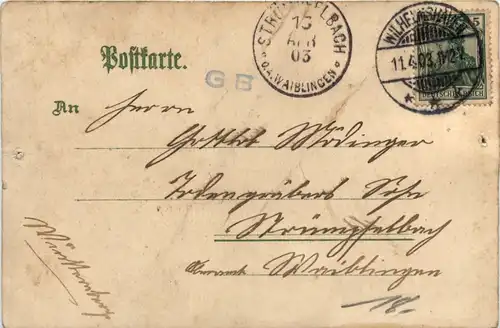 Postkarte.
STRÜMPFELBACH
15
APR
03
O.A. WAIBLINGEN
WILHELMSHAVEN
11.4.03. 11-12V
5
DEUTSCHES REICH
GB
An Herrn
Gottlob Mödinger
Todengräbers Sohn
Strümpfelbach
Oberamt Waiblingen
Württemberg
18.-